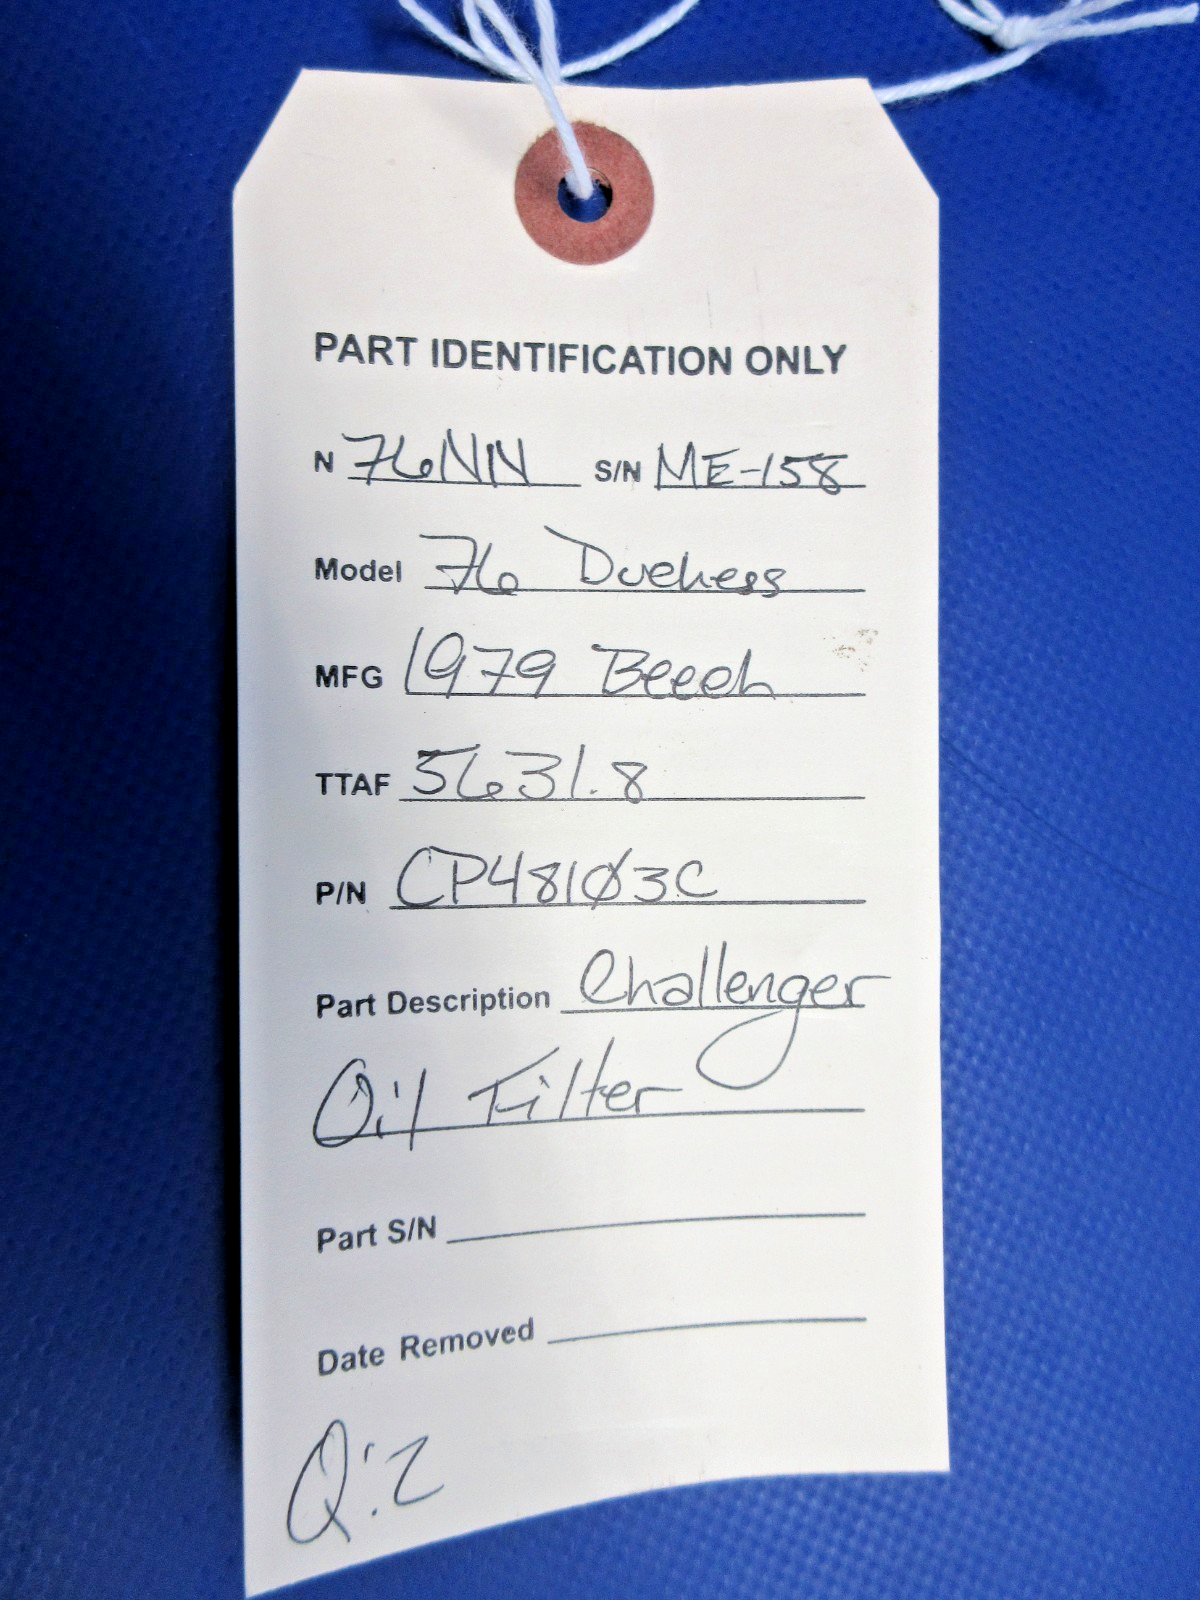 PART IDENTIFICATION ONLY
N 76NN S/N ME-158
Model 76 Duchess
MFG 1979 Beech
TTAF 5631.8
P/N CP481Ø3C
Part Description Challenger
Oil Filter
Part S/N
Date Removed
Q:2